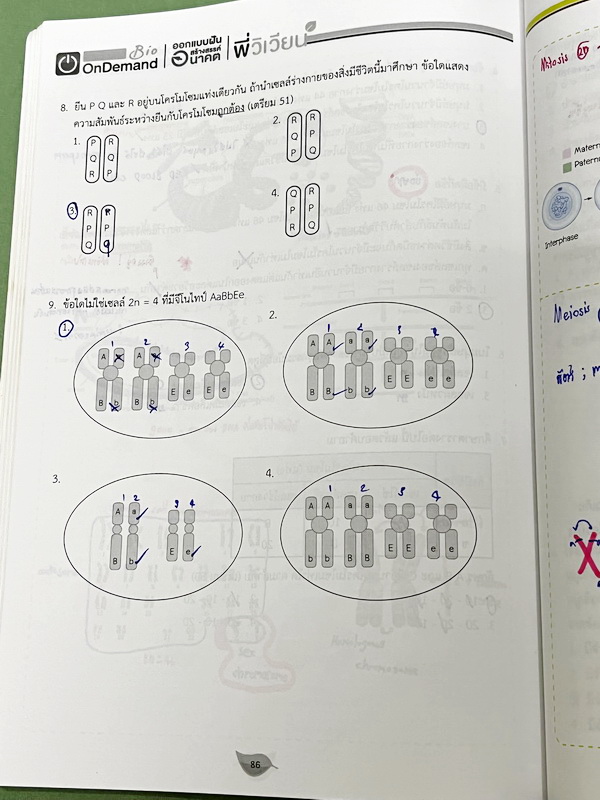 Bio
OnDemand
ออกแบบฝัน
สร้างสรรค์
อนาคต
พี่วิเวียน
8. ยีน P Q และ R อยู่บนโครโมโซมแท่งเดียวกัน ถ้านำเซลล์ร่างกายของสิ่งมีชีวิตนี้มาศึกษา ข้อใดแสดง
ความสัมพันธ์ระหว่างยีนกับโครโมโซมถูกต้อง (เตรียม 51)
1.
P R
Q Q
R P
2.
R R
Q P
P Q
3.
R R
P P
Q q
4.
Q R
P P
R Q
9. ข้อใดไม่ใช่เซลล์ 2n = 4 ที่มีจีโนไทป์ AaBbEe
1.
1 2 3 4
A A
B b B b E e E e
2.
1 2 3 4
A A a a
B B b b E E e e
3.
1 2 3 4
A a
B b E e
4.
1 2 3 4
A A a a
b b B B E E e e
86
Mitosis 2n
Matern
Patern
Interphase
Meiosis